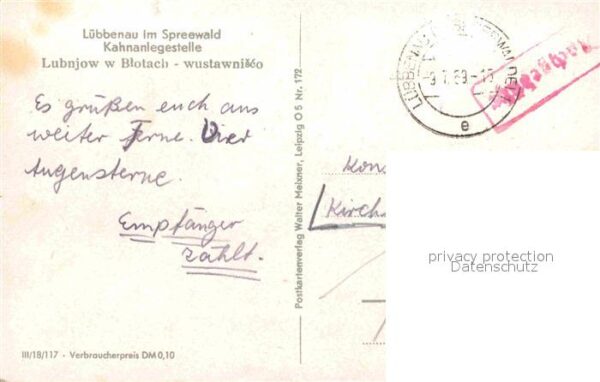 Lübbenau im Spreewald
Kahnanlegestelle
Lubnjow w Błotach - wustawnišćo
Es grüßen euch aus
weiter Ferne. Vier
Augensterne.
Empfänger
zahlt.
III/18/117 - Verbraucherpreis DM 0,10
Postkartenverlag Walter Meixner, Leipzig O 5 Nr. 172
e
Kirch
privacy protection
Datenschutz